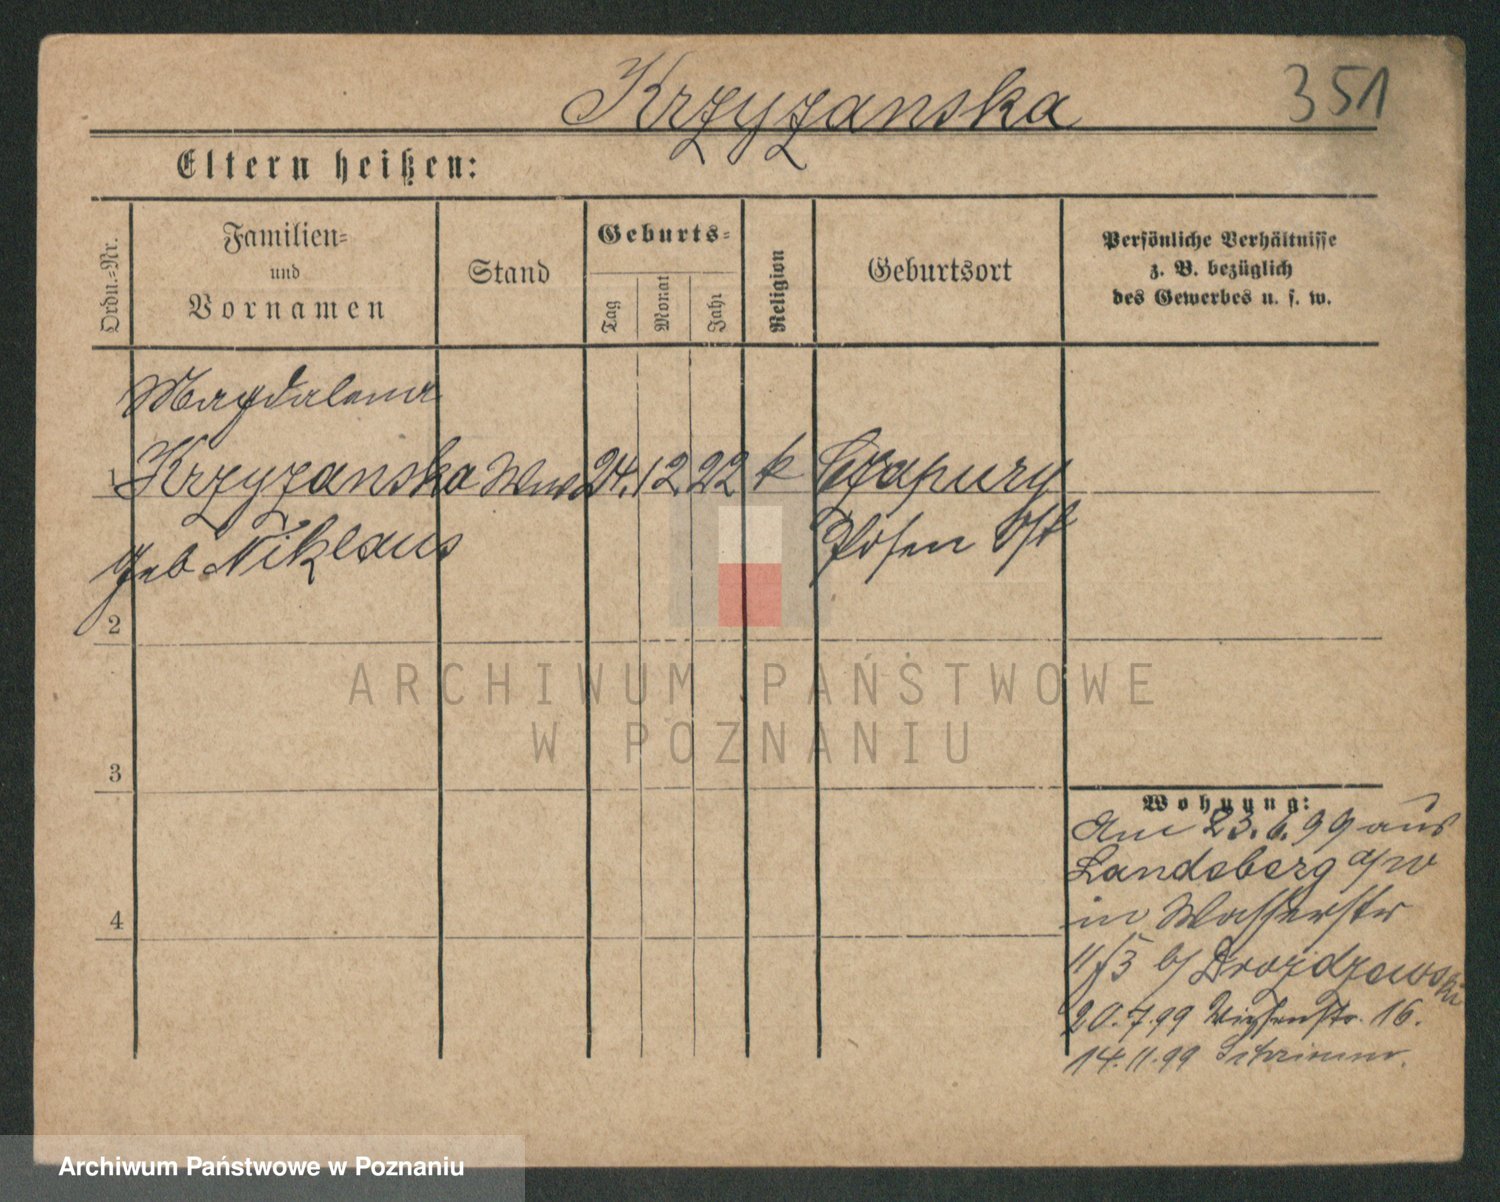 Krzyzanska
351
Eltern heißen:
Ordn.-Nr.
Familien-
und
Vornamen
Stand
Geburts-
Tag
Monat
Jahr
Religion
Geburtsort
Persönliche Verhältnisse
z. B. bezüglich
des Gewerbes u. s. w.
Magdalena
1 Krzyzanska Wwe 24. 12. 22 k Czapury
geb Niklaus Posen Ost
2
3
4
Wohnung:
Am 23.6.99 aus
Landsberg a/w
in Wasserstr
11/13 b/ Drozdzewski
20.7.99 16.
14.11.99
ARCHIWUM PAŃSTWOWE
W POZNANIU
Archiwum Państwowe w Poznaniu